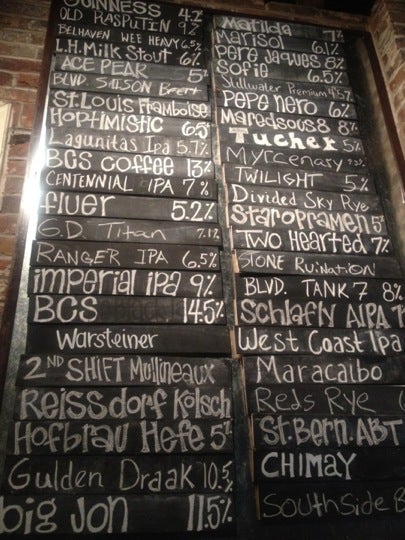 GUINNESS 4.2
OLD RASPUTIN 9%
BELHAVEN WEE HEAVY 6.5%
L.H. Milk Stout 6%
ACE PEAR 5%
BLVD SAISON Brett
St. Louis Framboise
HOPTIMISTIC 6.5
Lagunitas Ipa 5.7%
BCS COFFEE 13%
CENTENNIAL IPA 7%
fLUer 5.2%
G.D. Titan 7.1%
RANGER IPA 6.5%
imperial ipa 9%
BCS 14.5%
Warsteiner
2ND SHIFT Mullineaux
Reissdorf Kölsch
Hofbrau Hefe 5%
Gulden Draak 10.5%
big Jon 11.5%
Matilda 7%
MARISOL 6.1%
Pere Jaques 8%
Sofie 6.5%
Stillwater Premium 4.5%
PEPE NERO 6%
Maredsous 8 8%
Tucher 5%
Myrcenary
TWILIGHT 5%
Divided Sky Rye
Staropramen 5%
Two Hearted 7%
STONE RUINATION
BLVD. TANK 7 8%
Schlafly AIPA 7
West Coast Ipa
Maracaibo
Reds Rye
St. Bern. ABT
CHIMAY
SOUTHSIDE B